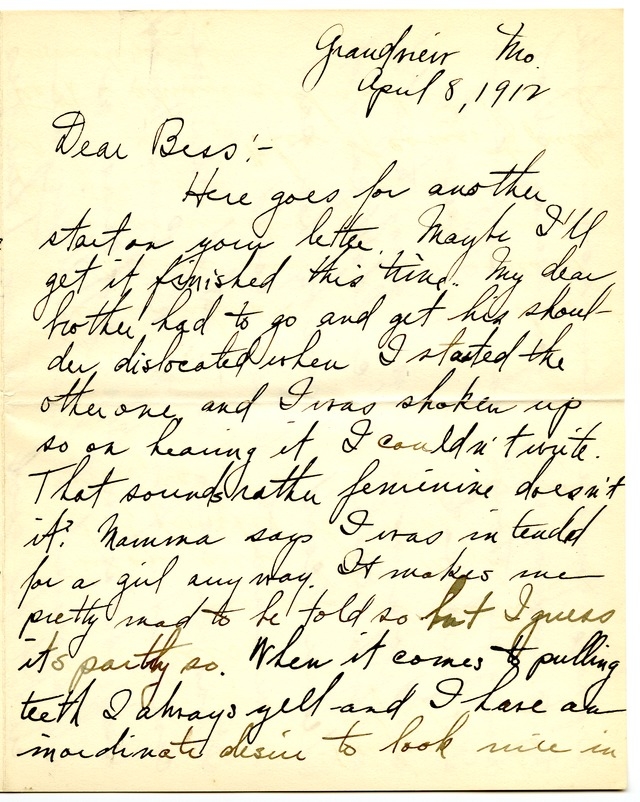 Grandview Mo.
April 8, 1912
Dear Bess:-
Here goes for another
start on your letter. Maybe I'll
get it finished this time. My dear
brother had to go and get his shoul-
der dislocated when I started the
other one and I was shoken up
so on hearing it I couldn't write.
That sounds rather feminine doesn't
it? Mamma says I was intended
for a girl anyway. It makes me
pretty mad to be told so but I guess
its partly so. When it comes to pulling
teeth I always yell and I have an
inordinate desire to look nice in